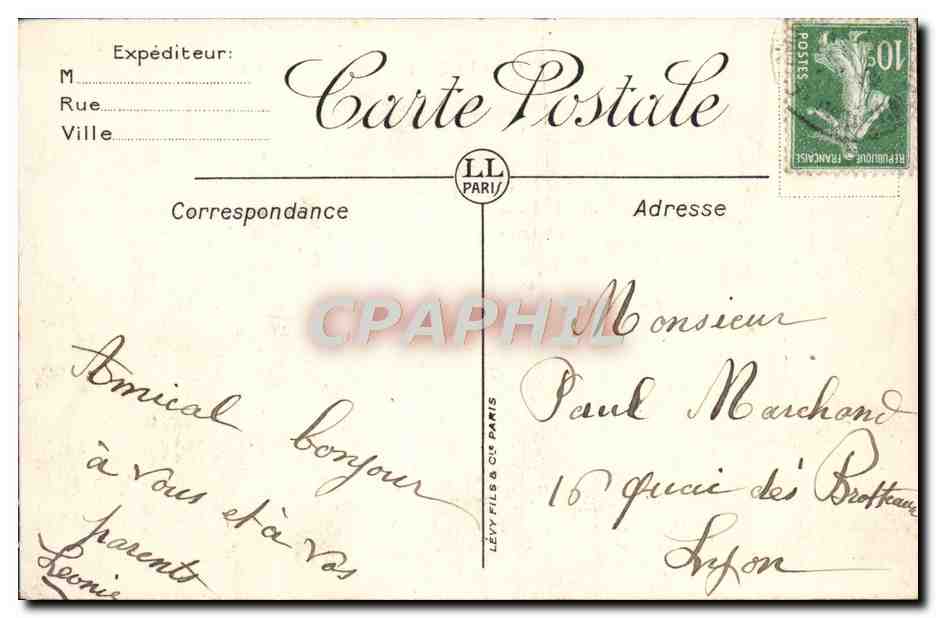 Expéditeur:
M
Rue
Ville
Carte Postale
10c
POSTES
RÉPUBLIQUE FRANÇAISE
LL
PARIS
Correspondance
Adresse
CPAPHIL
Amical bonjour
à vous et à vos
parents
Leonie
LÉVY FILS & Cie PARIS
Monsieur
Paul Marchand
16 quai dés Brotteaux
Lyon